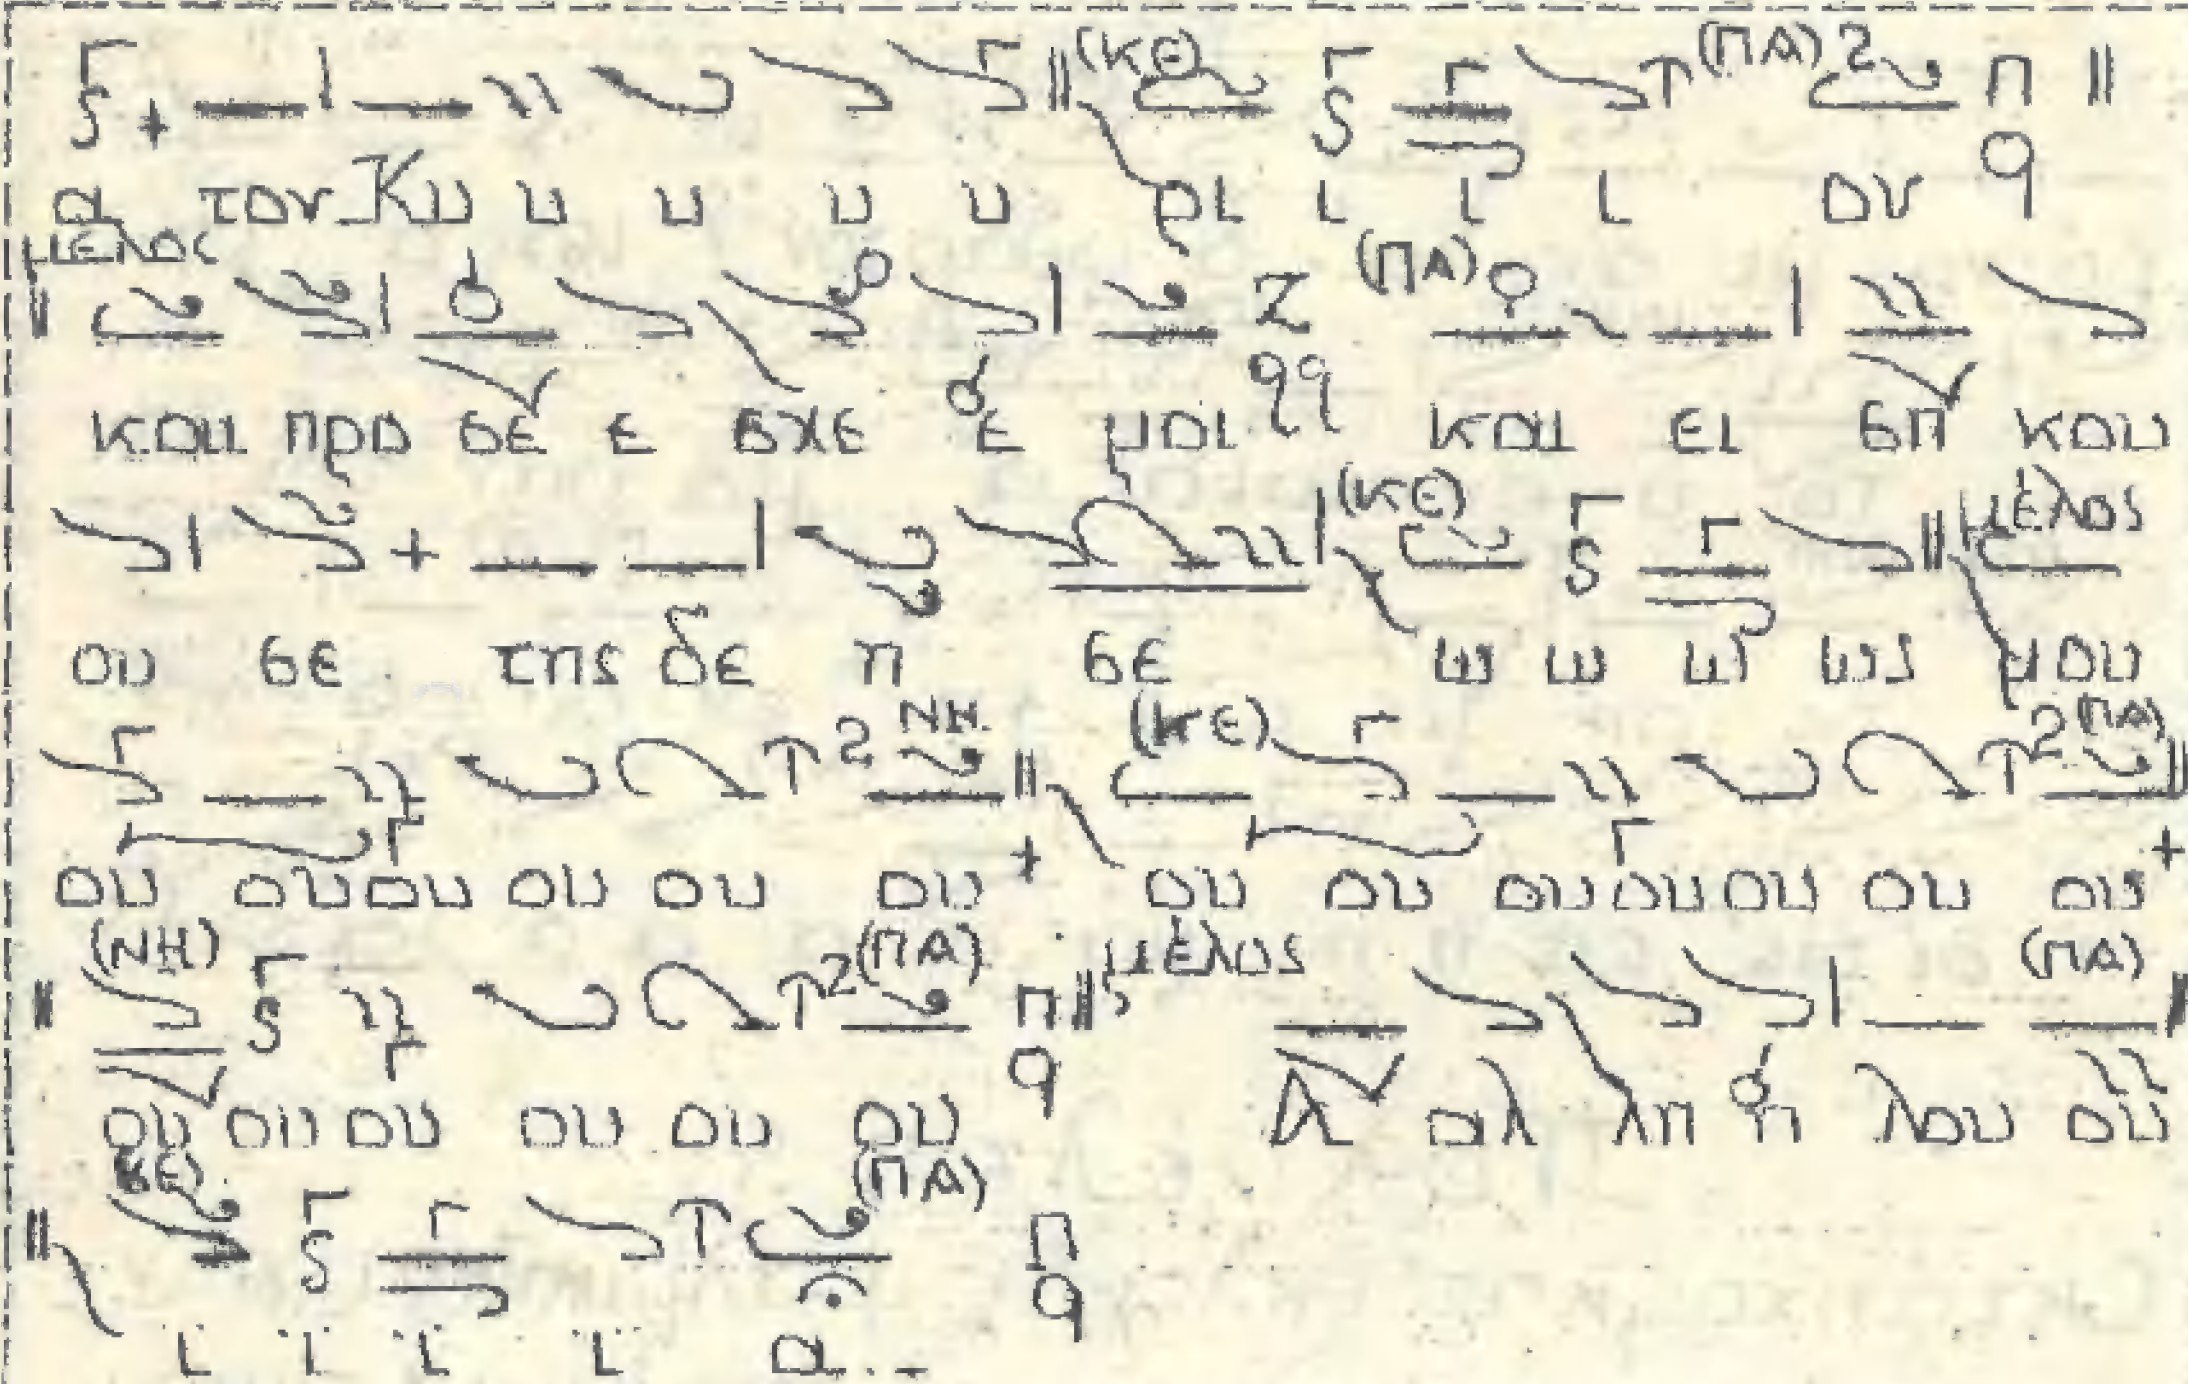 (ΚΕ) (ΠΑ) Π
α τον Κυ υ υ υ υ ρι ι ι ι ον q
μέλος (ΠΑ) Ζ
και προ σε ε σχε ε μοι και ει σή κου
(ΚΕ) μέλος
ου σε της δε η σε ω ω ω ως μου
ΝΗ (ΚΕ) (ΠΑ)
ου ου ου ου ου ου ου ου ου ου ου ου ου
(ΝΗ) (ΠΑ) Π μέλος (ΠΑ)
ου ου ου ου ου ου Α αλ λη η λου ου
(ΚΕ) (ΠΑ) Π
ι ι ι ι α..